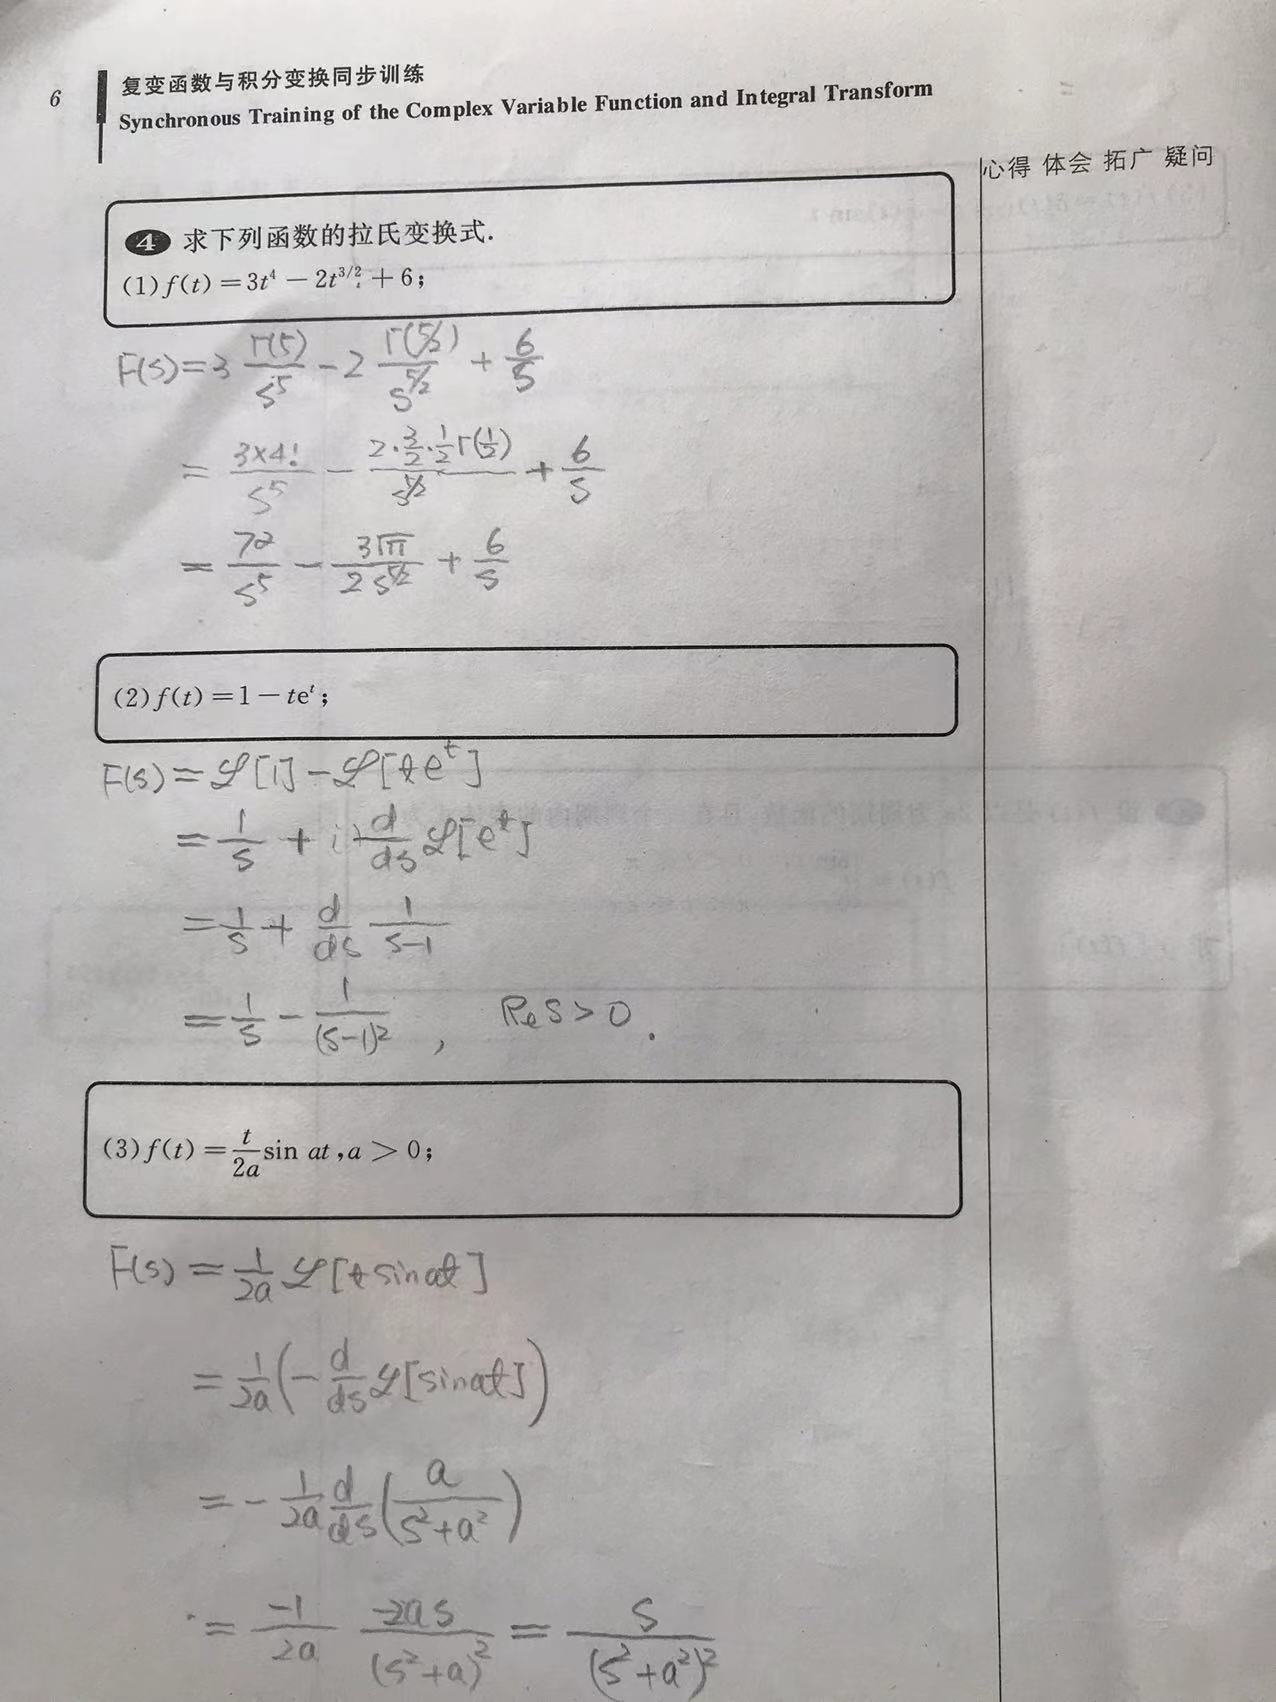 6
复变函数与积分变换同步训练
Synchronous Training of the Complex Variable Function and Integral Transform
心得 体会 拓广 疑问
4 求下列函数的拉氏变换式.
(1) f(t) = 3t⁴ − 2t^{3/2} + 6;
F(s) = 3 Γ(5)/s⁵ − 2 Γ(5/2)/s^{5/2} + 6/s
= 3×4!/s⁵ − 2·3/2·1/2 Γ(1/2)/s^{5/2} + 6/s
= 72/s⁵ − 3√π/2s^{5/2} + 6/s
(2) f(t) = 1 − te^t;
F(s) = ℒ[1] − ℒ[te^t]
= 1/s + d/ds ℒ[e^t]
= 1/s + d/ds 1/(s−1)
= 1/s − 1/(s−1)², Re s > 0.
(3) f(t) = t/2a sin at, a > 0;
F(s) = 1/2a ℒ[t sin at]
= 1/2a (− d/ds ℒ[sin at])
= − 1/2a d/ds (a/(s²+a²))
= −1/2a −2as/(s²+a)² = s/(s²+a²)²